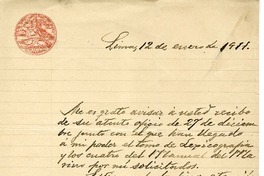 Lemos, 12 de enero de 1911.
Me es grato avisar á usted recibo
de su atento oficio de 27 de diciem
bre junto con el que han llegado
á mi poder el tomo de Lexicografia
y los cuatro del Manual del Ma
rino por mi solicitados.